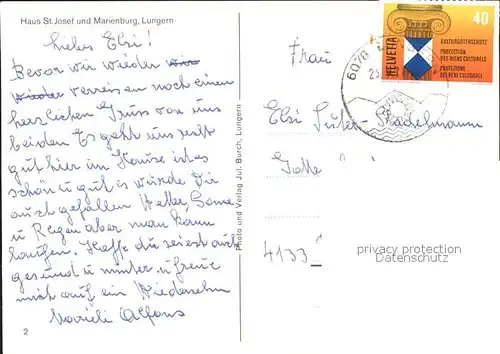 Haus St. Josef und Marienburg, Lungern
Liebes Elsi!
Bevor wir wieder
verreisen noch einen
herzlichen Gruss von uns
beiden Es geht uns recht
gut hier im Hause ist es
schön u gut es würde Dir
auch gefallen Wetter, Sonne
u Regen aber man kann
laufen. Hoffe du seiest auch
gesund u munter, u freue
mich auf ein Wiedersehn
Alfons
2
Photo und Verlag Jul. Burch, Lungern
Frau
Elsi Suter-
4133
6078
40
HELVETIA
KULTURGÜTERSCHUTZ
PROTECTION
DES BIENS CULTURELS
PROTEZIONE
DEI BENI CULTURALI
privacy protection
Datenschutz